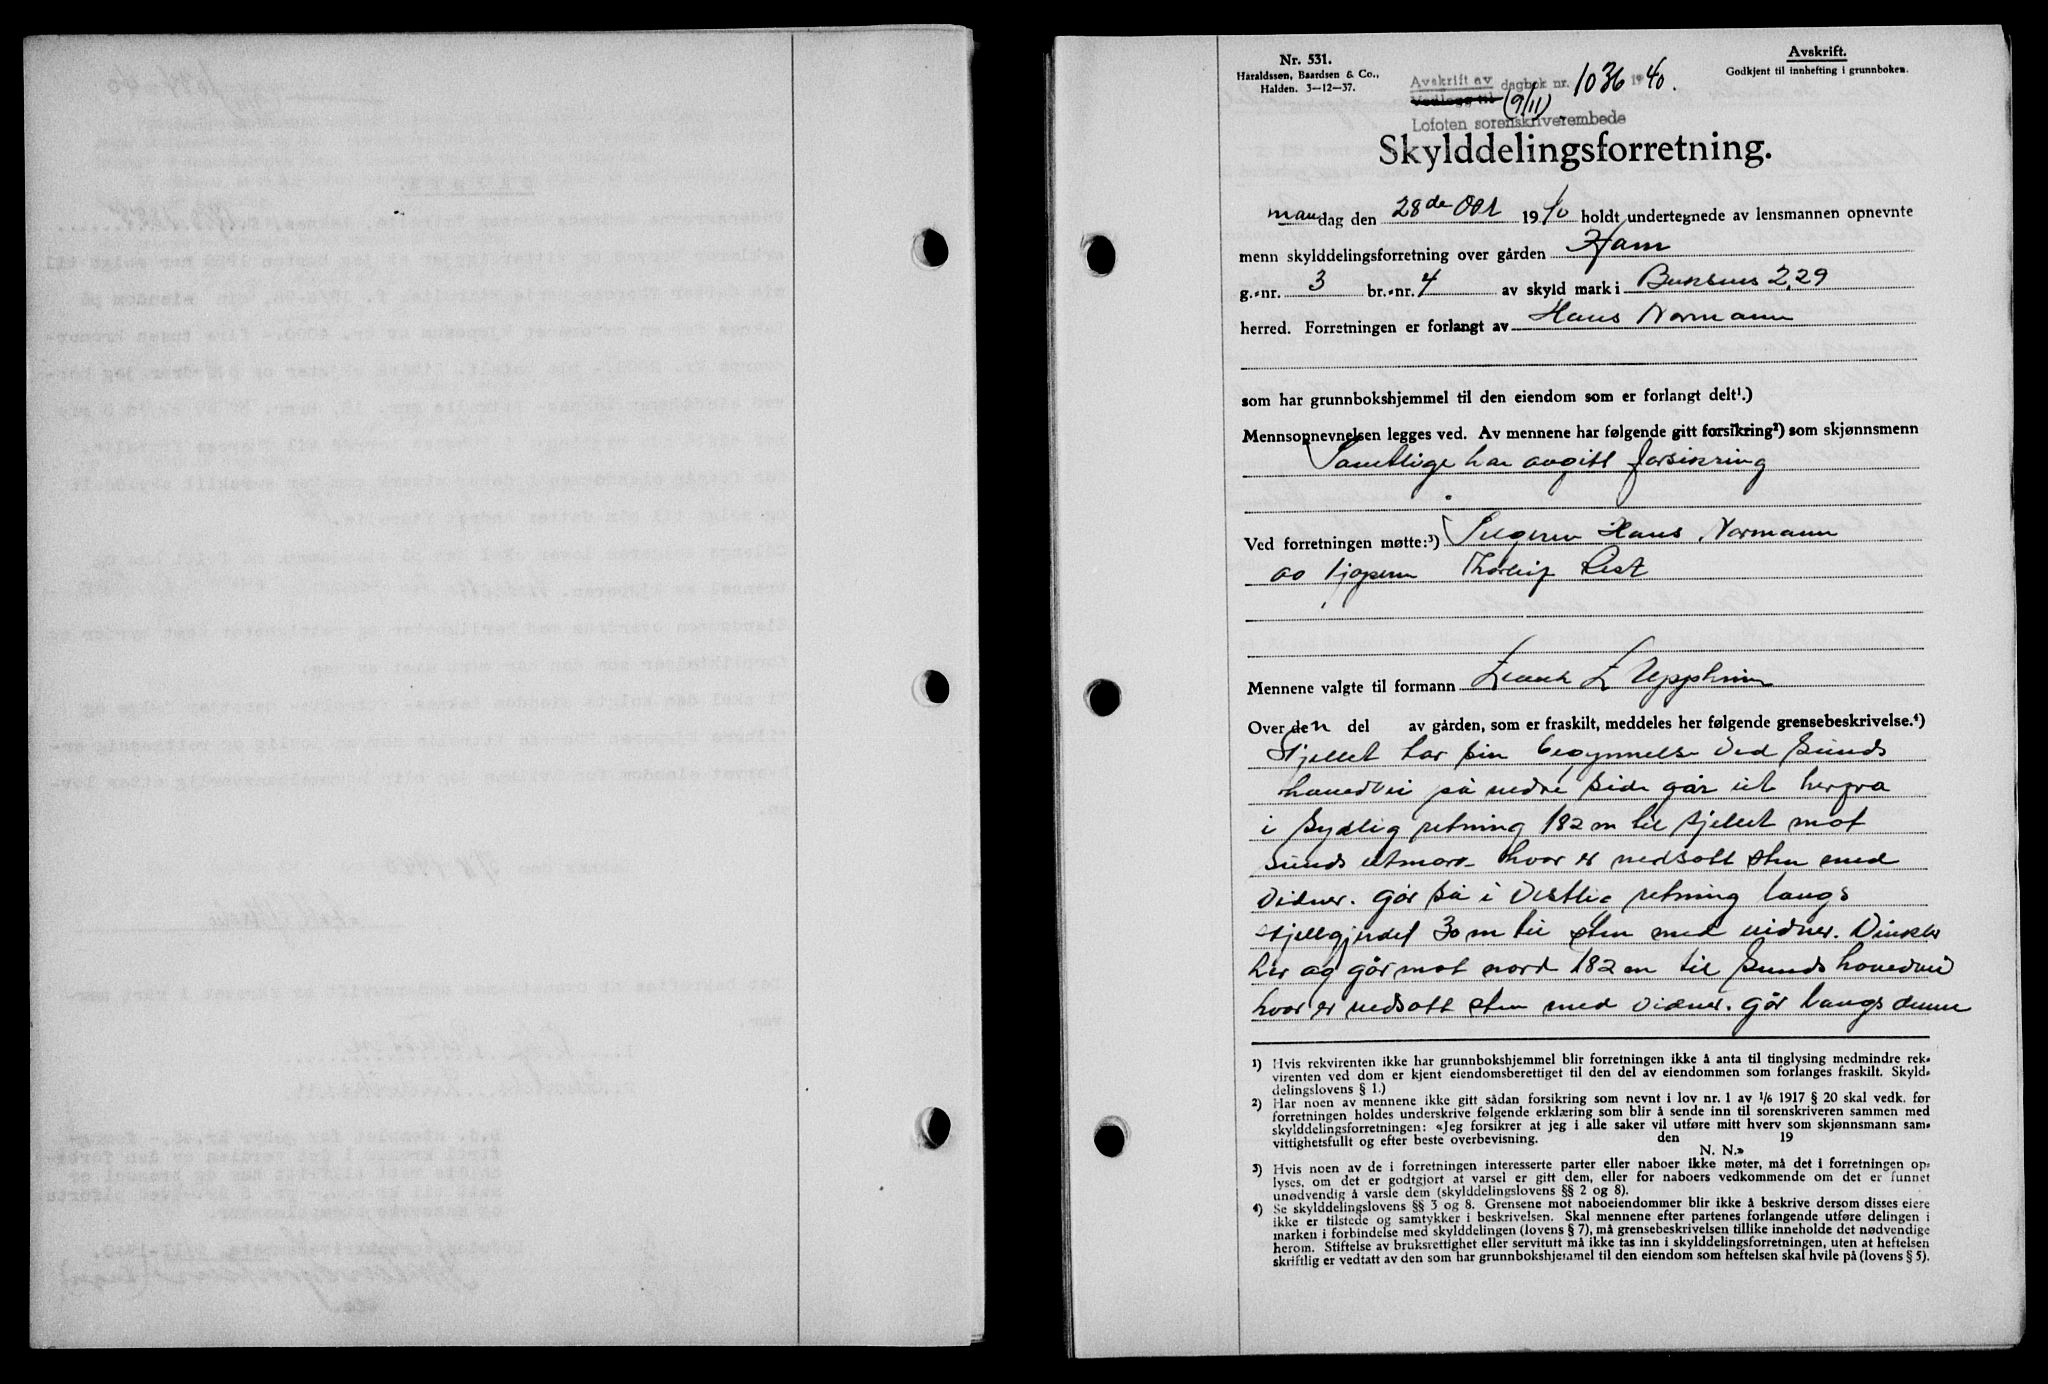 Nr. 531.
Haraldssen, Baardsen & Co.,
Halden. 3—12—37.
Avskrift.
Godkjent til innhefting i grunnboken.
Avskrift av dagbok nr. 1036 1940.
Vedlegg til (9/11)
Lofoten sorenskriverembede
Skylddelingsforretning.
mandag den 28de Okt 1940 holdt undertegnede av lensmannen opnevnte
menn skylddelingsforretning over gården Ham
g.-nr. 3 br.-nr. 4 av skyld mark i Buksnes 2,29
herred. Forretningen er forlangt av Hans Normann
som har grunnbokshjemmel til den eiendom som er forlangt delt¹.)
Mennsopnevnelsen legges ved. Av mennene har følgende gitt forsikring²) som skjønnsmenn
Samtlige har avgitt forsikring
Ved forretningen møtte:³) Selgeren Hans Normann
og kjøperen Thorleif
Mennene valgte til formann
Over den del av gården, som er fraskilt, meddeles her følgende grensebeskrivelse.⁴)
Skjellet har sin begynnelse ved Sunds
hovedvei på nedre side går ut herfra
i sydlig retning 182 m til skjellet mot
Sunds utmark hvor er nedsatt sten med
vidner. Går så i vestlig retning langs
skjellgjerdet 30 m til sten med vidner. Vinkler
her og går mot nord 182 m til Sunds hovedvei
hvor er nedsatt sten med vidner. Går langs denne
¹) Hvis rekvirenten ikke har grunnbokshjemmel blir forretningen ikke å anta til tinglysing medmindre rek-
virenten ved dom er kjent eiendomsberettiget til den del av eiendommen som forlanges fraskilt. Skyld-
delingslovens § 1.)
²) Har noen av mennene ikke gitt sådan forsikring som nevnt i lov nr. 1 av 1/6 1917 § 20 skal vedk. før
forretningen holdes underskrive følgende erklæring som blir å sende inn til sorenskriveren sammen med
skylddelingsforretningen: «Jeg forsikrer at jeg i alle saker vil utføre mitt hverv som skjønnsmann sam-
vittighetsfullt og efter beste overbevisning. den 19
N. N.»
³) Hvis noen av de i forretningen interesserte parter eller naboer ikke møter, må det i forretningen op-
lyses, om det er godtgjort at varsel er gitt dem, eller for naboers vedkommende om det er funnet
unødvendig å varsle dem (skylddelingslovens §§ 2 og 8).
⁴) Se skylddelingslovens §§ 3 og 8. Grensene mot naboeiendommer blir ikke å beskrive dersom disses eiere
ikke er tilstede og samtykker i beskrivelsen. Skal mennene efter partenes forlangende utføre delingen i
marken i forbindelse med skylddelingen (lovens § 7), må grensebeskrivelsen tillike inneholde det nødvendige
herom. Stiftelse av bruksrettighet eller servitutt må ikke tas inn i skylddelingsforretningen, uten at heftelsen
skriftlig er vedtatt av den som har grunnbokshjemmel til den eiendom som heftelsen skal hvile på (lovens § 5).